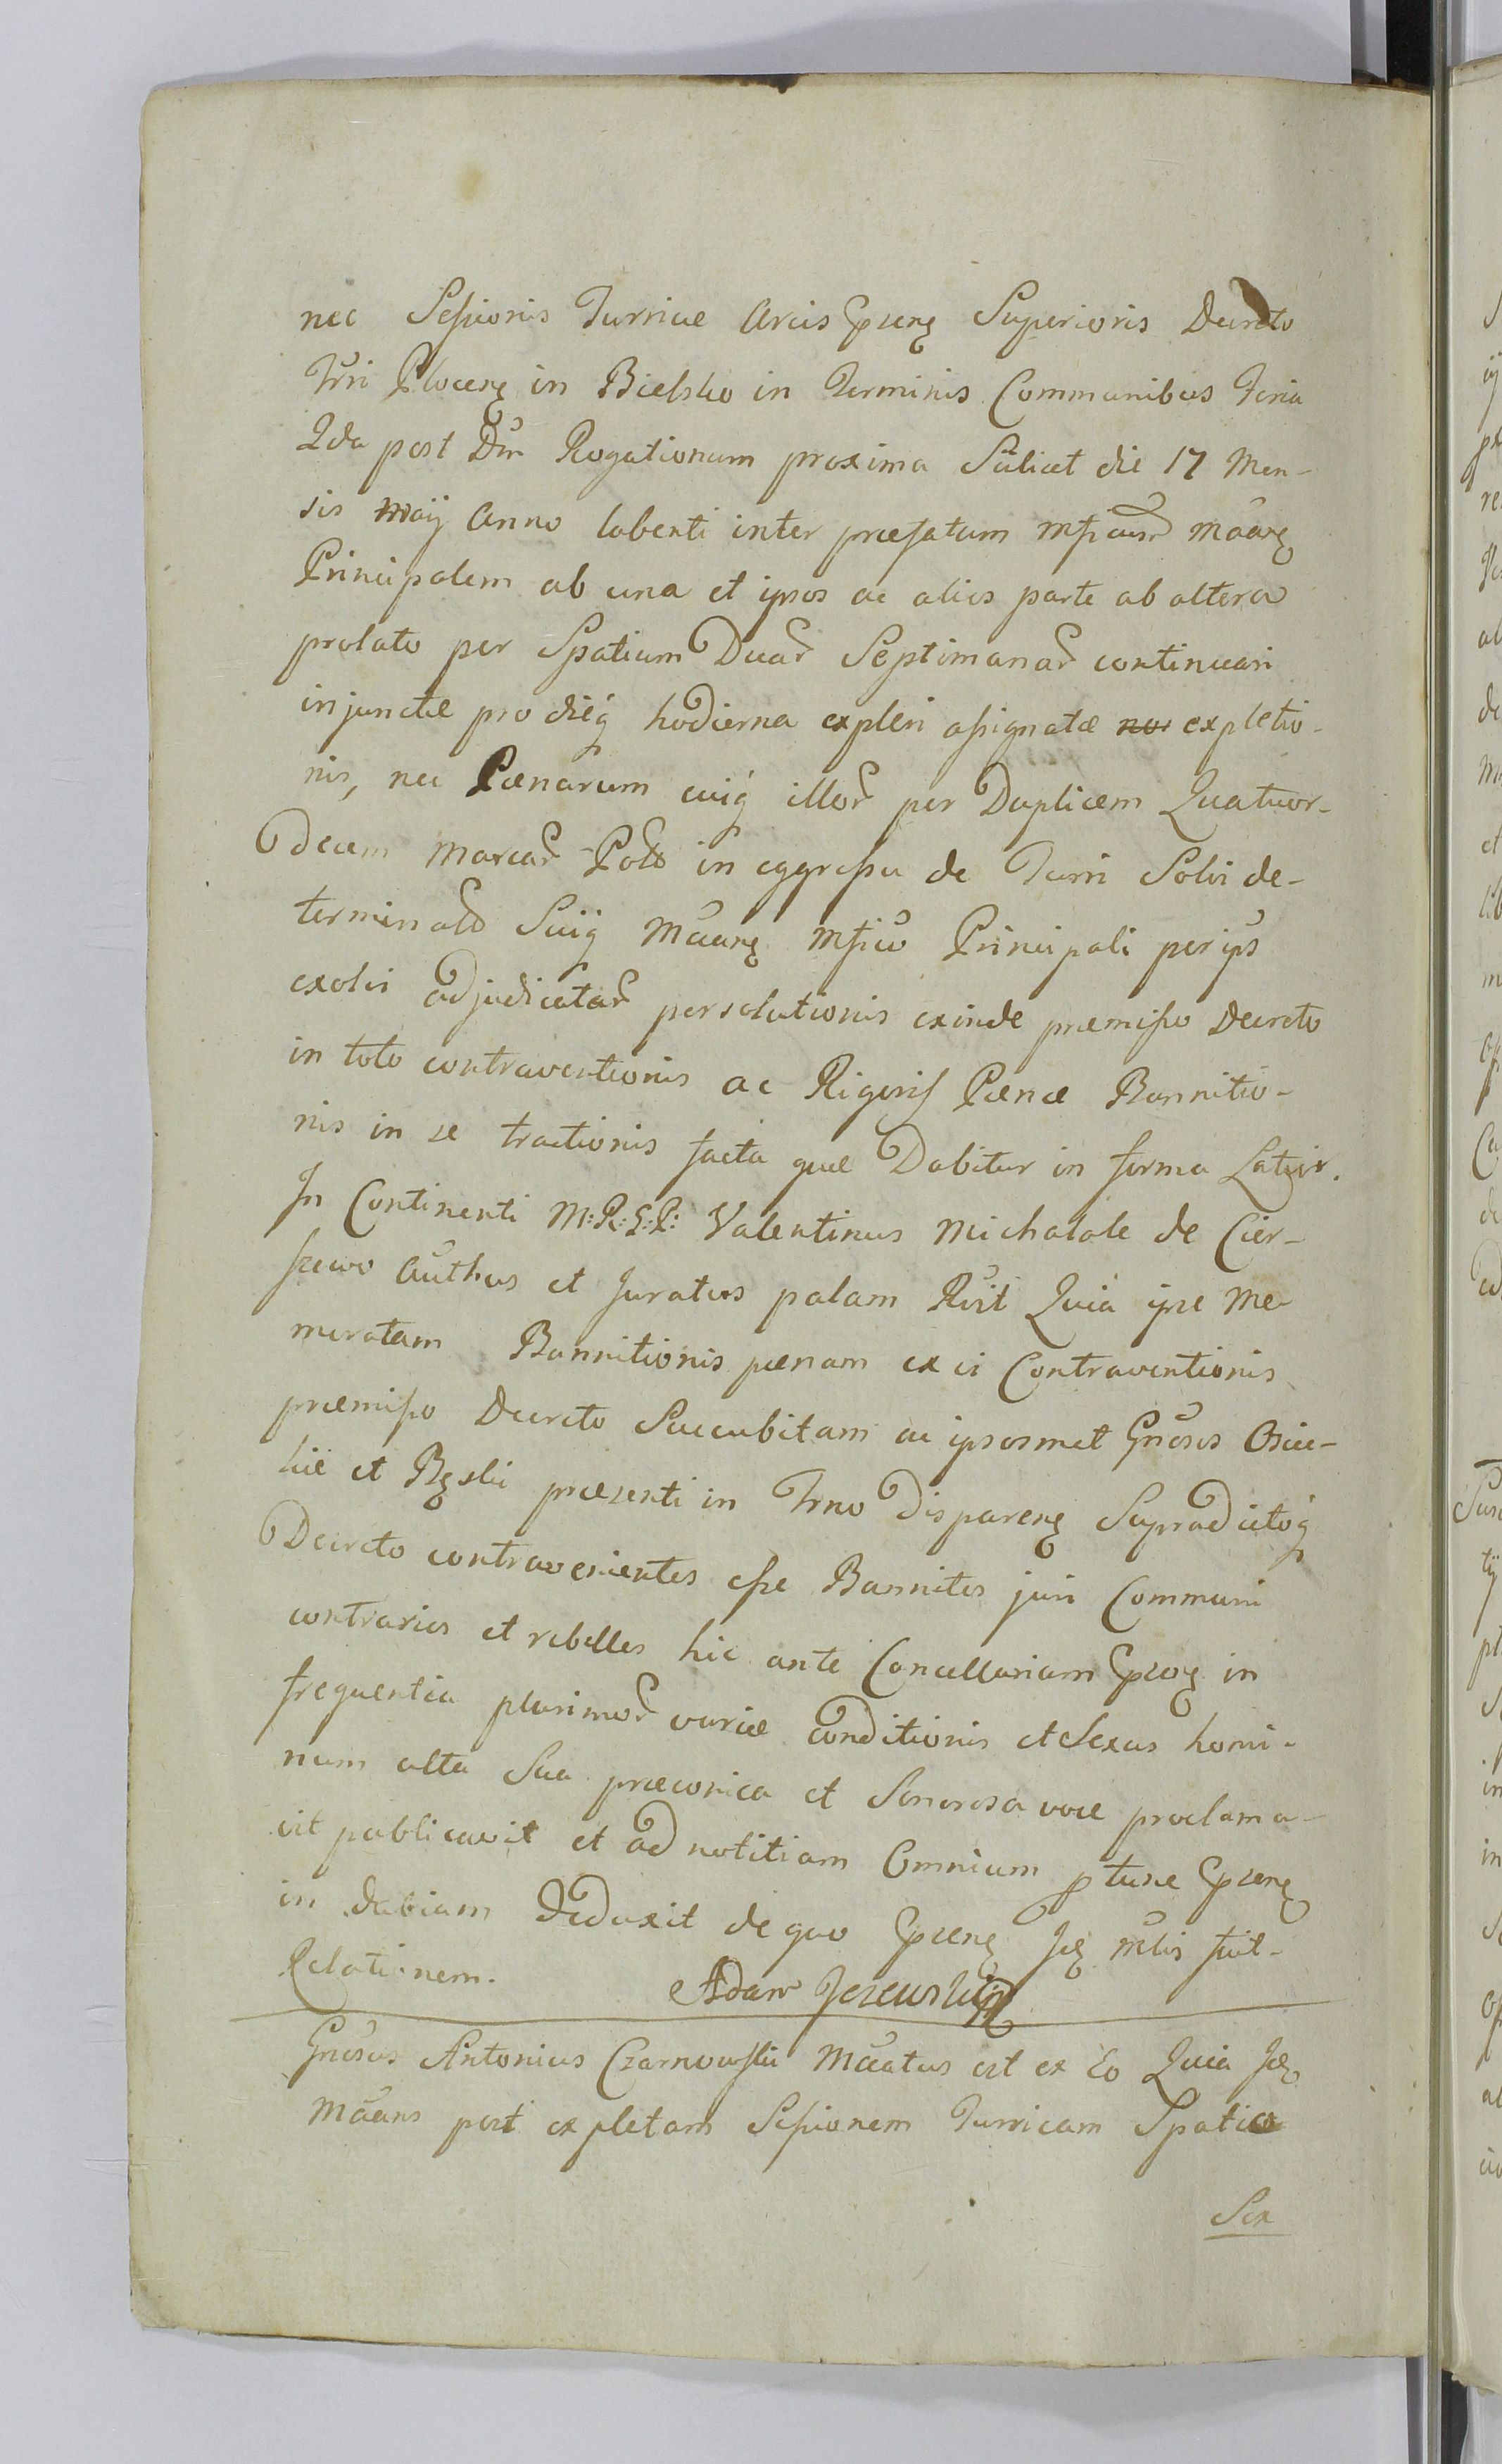 nec Sessionis Turricae Arcis Gpreng Superioris Decreto
Tri Plocen in Bielsko in Terminis Communibus Feria
2da post Dm̃ Rogationum proxima Scilicet die 17 Men-
sis maij Anno labenti inter praefatum Mficum Maarg
Principalem ab una et ipsos ac alios parte ab altera
prolato per Spatium Duar Septimanar continuari
injunctae pro dieq hodierna expleri assignatae expletio-
nis, nec Paenarum cuiq illor per Duplicem Quatuor-
decem Marcar Pol in eggressu de Turri Solvi de-
terminat Suiq Maang Mfico Principali per ips
exolvi adjudicatar persolutionis exinde praemisso Decreto
in toto contraventionis ac Rigoris Paenae Bannitio-
nis in se tractionis facta quae Dabitur in forma Latior.
In Continenti M:R:G:P: Valentinus Michalale de Cier-
szewo Authus et Juratus palam Rvit Quia ipse Me-
moratam Bannitionis paenam ex vi Contraventionis
praemisso Decreto Succubitam ac ipsosmet Gnosos Osie-
kie et Bęski praesenti in Trno dispareng Supradictoq
Decreto contravenientes esse Bannitos juri Communi
contrarios et rebelles hic ante Cancellariam in
frequentia plurimor variae conditionis et Sexus homi-
num alta Sua praeconica et Sonorosa voce proclama-
vit publicavit et ad notitiam Omnium
in dubiam deduxit de quo mlis fcit
Relationem. Adam Jezewski
Gnosus Antonius Czarnowski Maatus est ex Eo Quia
Maans post expletam Sessionem Turricam Spatio
Sex